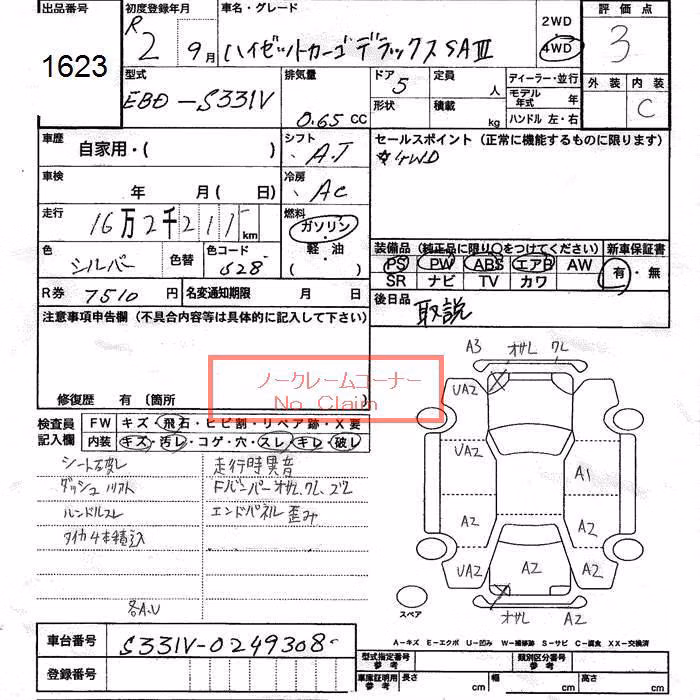 出品番号 初度登録年月 車名・グレード 2WD 評価点
1623 R2 9月 ハイゼットカーゴデラックスSAⅢ 4WD 3
型式 排気量 ドア 5 定員 人 ディーラー・並行 外装 内装
EBD-S331V 0.65 CC 形状 積載 kg モデル年式 年 C
ハンドル 左・右
車歴 自家用・( ) シフト A.T セールスポイント (正常に機能するものに限ります)
☆4WD
車検 年 月( 日) 冷房 AC
走行 16万2千211km 燃料 ガソリン・軽・油 ( )
装備品 (純正品に限り○をつけてください) 新車保証書
色 シルバー 色替 色コード S28
PS PW ABS エアB AW 有・無
SR ナビ TV カワ
R券 7510円 名変通知期限 月 日
後日品 取説
注意事項申告欄 (不具合内容等は具体的に記入して下さい)
ノークレームコーナー
No Claim
修復歴 有 (箇所
検査員記入欄 FW キズ・飛石・ヒビ割・リペア跡・X要
内装 キズ・汚レ・コゲ・穴・スレ・キレ・破レ
シート破レ 走行時異音
ダッシュリフト Fバンパーオサレ、ワレ、ズレ
ハンドルスレ エンドパネル歪み
タイカ4本積込
各A.U
A3 オサレ ワレ
UA2
UA2 A1
A2 A2
UA2 A2 A2
スペア オサレ A2
A-キズ E-エクボ U-凹み W-補修跡 S-サビ C-腐食 XX-交換済
車台番号 S331V-0249308
型式指定番号 参考 類別区分番号 参考
登録番号
車庫証明用 参考 長さ cm 幅 cm 高さ cm